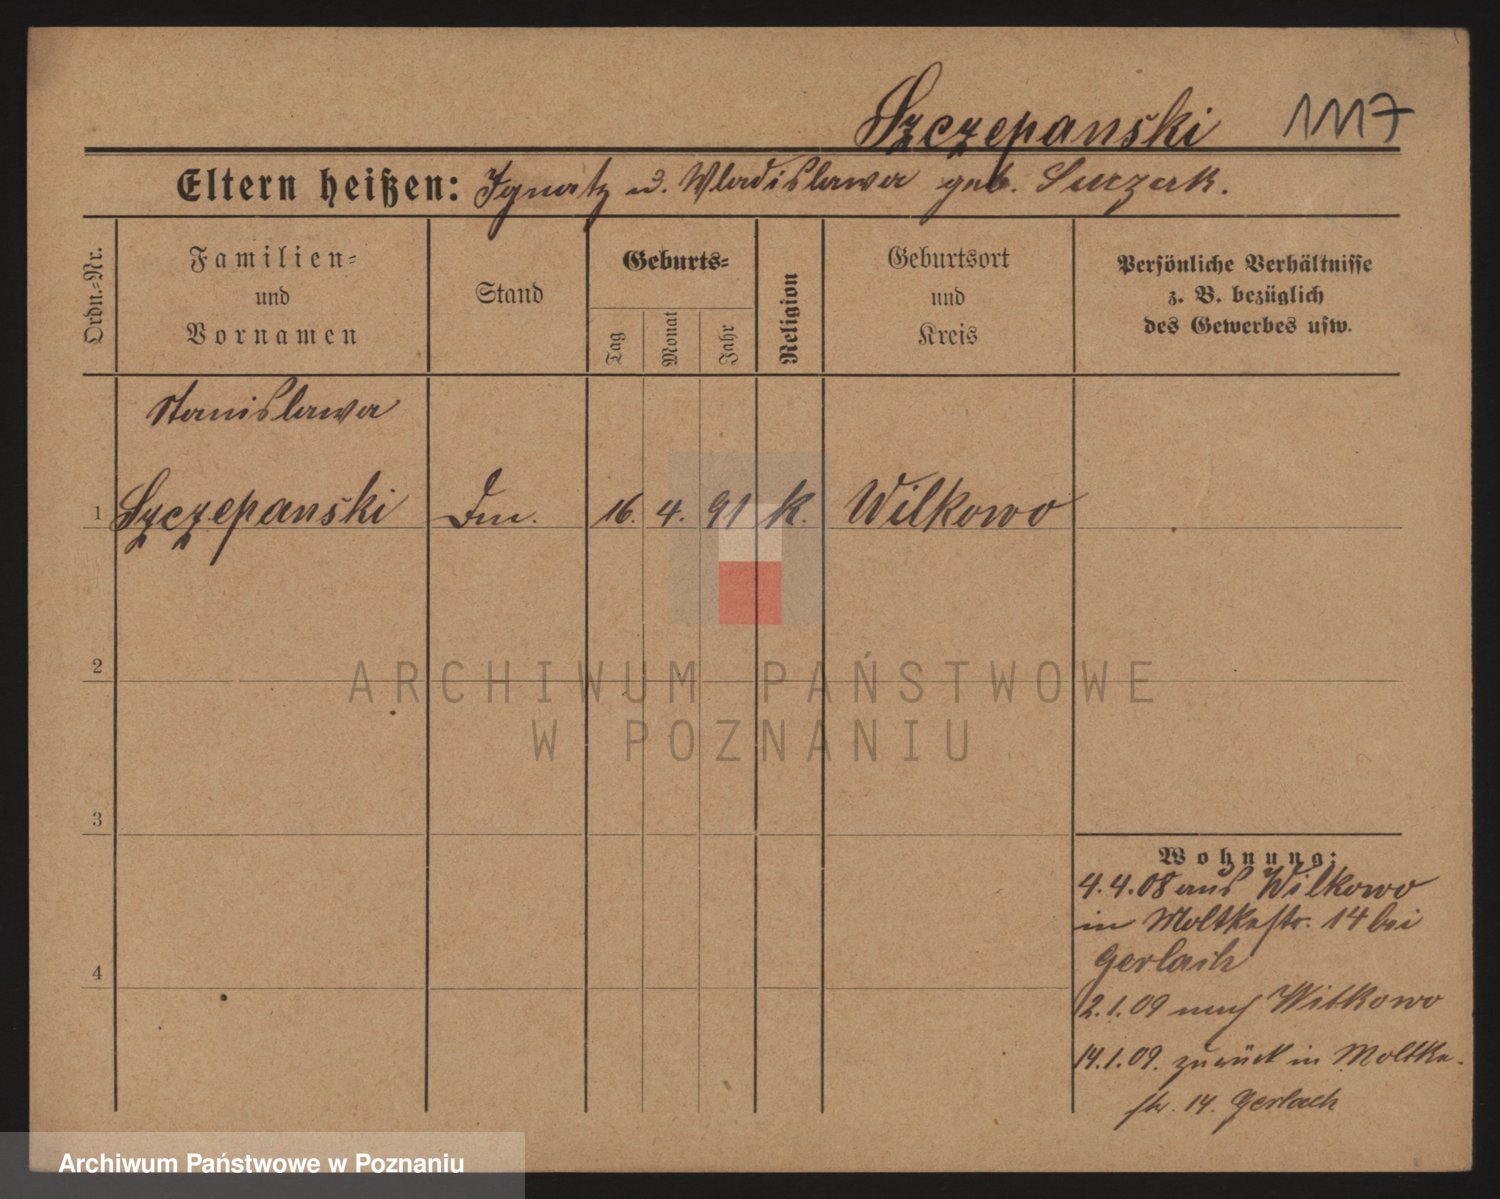 Szczepanski 1117
Eltern heißen: Ignatz u. Wladislawa geb.
Ordn.-Nr.
Familien-
und
Vornamen
Stand
Geburts-
Tag
Monat
Jahr
Religion
Geburtsort
und
Kreis
Persönliche Verhältnisse
z. B. bezüglich
des Gewerbes usw.
Stanislawa
1 Szczepanski 16. 4. 91 k. Wilkowo
2
ARCHIWUM PAŃSTWOWE
W POZNANIU
3
4
Wohnung:
4.4.08 aus Wilkowo
in Moltkestr. 14 bei
Gerlach
2.1.09 nach Witkowo
14.1.09. zurück in Moltke-
str. 14. Gerlach
Archiwum Państwowe w Poznaniu